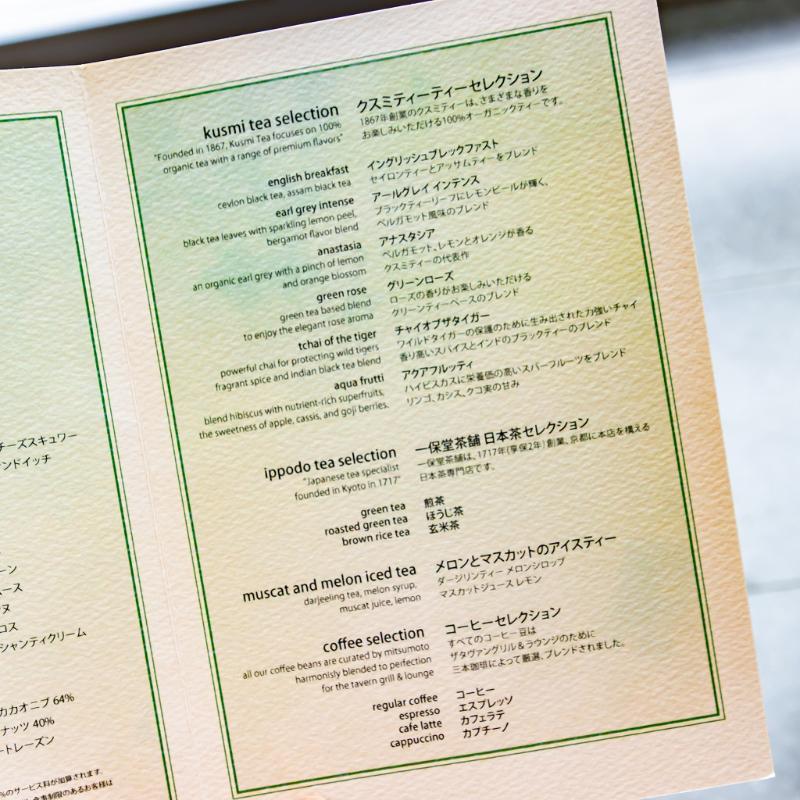 kusmi tea selection
"Founded in 1867, Kusmi Tea focuses on 100%
organic tea with a range of premium flavors"
クスミティーティーセレクション
1867年創業のクスミティーは、さまざまな香りを
お楽しみいただける100%オーガニックティーです。
english breakfast
ceylon black tea, assam black tea
イングリッシュブレックファスト
セイロンティーとアッサムティーをブレンド
earl grey intense
black tea leaves with sparkling lemon peel,
bergamot flavor blend
アールグレイ インテンス
ブラックティーリーフにレモンピールが輝く、
ベルガモット風味のブレンド
anastasia
an organic earl grey with a pinch of lemon
and orange blossom
アナスタシア
ベルガモット、レモンとオレンジが香る
クスミティーの代表作
green rose
green tea based blend
to enjoy the elegant rose aroma
グリーンローズ
ローズの香りがお楽しみいただける
グリーンティーベースのブレンド
tchai of the tiger
powerful chai for protecting wild tigers
fragrant spice and indian black tea blend
チャイオブザタイガー
ワイルドタイガーの保護のために生み出された力強いチャイ
香り高いスパイスとインドのブラックティーのブレンド
aqua frutti
blend hibiscus with nutrient-rich superfruits,
the sweetness of apple, cassis, and goji berries.
アクアフルッティ
ハイビスカスに栄養価の高いスパーフルーツをブレンド
リンゴ、カシス、クコ実の甘み
ippodo tea selection
"Japanese tea specialist
founded in Kyoto in 1717"
一保堂茶舗 日本茶セレクション
一保堂茶舗は、1717年(享保2年) 創業、京都に本店を構える
日本茶専門店です。
green tea 煎茶
roasted green tea ほうじ茶
brown rice tea 玄米茶
muscat and melon iced tea
darjeeling tea, melon syrup,
muscat juice, lemon
メロンとマスカットのアイスティー
ダージリンティー メロンシロップ
マスカットジュース レモン
coffee selection
all our coffee beans are curated by mitsumoto
harmonisly blended to perfection
for the tavern grill & lounge
コーヒーセレクション
すべてのコーヒー豆は
ザタヴァングリル＆ラウンジのために
三本珈琲によって厳選、ブレンドされました。
regular coffee コーヒー
espresso エスプレッソ
cafe latte カフェラテ
cappuccino カプチーノ
チーズスキュワー
ンドイッチ
ーン
ース
ヌ
コス
シャンティクリーム
カカオニブ 64%
ナッツ 40%
ートレーズン
%のサービス料が加算されます。
食事制限のあるお客様は